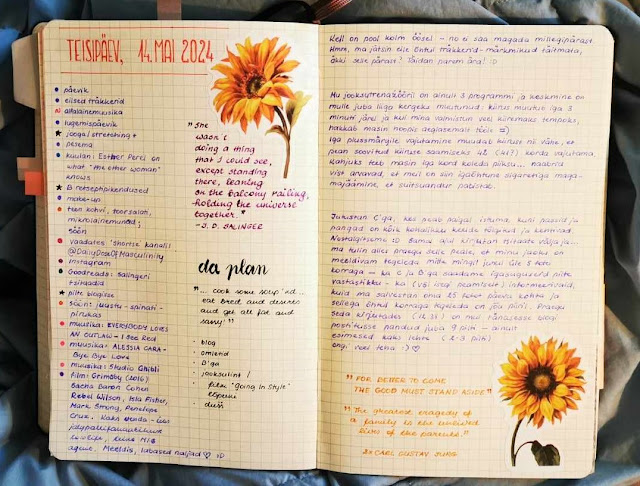 TEISIPÄEV, 14. MAI 2024
päevik
eilsed träkkerid
alalainemuusika
lugemispäevik
jooga / stretching +
pesema
kuulan: Esther Perel on
what "the other woman"
knows
B retseptipikendused
make-up
teen kohvi, toorsalati,
mikrolainemunad;
söön
vaadates shortse kanalil
@DaisyDoseOfMasculinity
Instagram
Goodreads: Salingeri
tsitaadid
pilte blogisse
söön: juustu-spinati-
pirukas
muusika: EVERYBODY LOVES
AN OUTLAW - I See Red
muusika: ALESSIA CARA -
Bye Bye Love
muusika: Studio Ghibli
film: Grimsby (2016)
Sacha Baron Cohen
Rebel Wilson, Isla Fisher,
Mark Strong, Penelope
Cruz. Kaks venda - üks
teine MI6
agent. Meeldis, labased naljad ♡ :D
"She
wasn't
doing a thing
that I could see,
except standing
there, leaning
on the balcony railing,
holding the universe
together."
- J. D. SALINGER
da plan
"... cook some soup and...
eat bread, and desires
and get all fat and
sassy."
blog
omletid
D'ga
jooksulint /
film "Going In Style"
lõpuni
dušš
Kell on pool kolm öösel - no ei saa magada millegipärast.
Hmm, ma jätsin eile õhtul träkkerid-märkmikud täitmata,
äkki selle pärast? Täidan parem ära! :D
Mu jooksutrenažööril on ainult 3 programmi ja keskmine on
mulle juba liiga kergeks muutunud: kiirus muutub iga 3
minuti järel ja kui mina valmistun veel kiiremaks tempoks,
hakkab masin hoopis aeglasemalt tööle =)
Iga plussmärgile vajutamine muudab kiirus nii vähe, et
pean soovitud kiiruse saamiseks 42 (või?) korda vajutama.
Kahjuks teeb masin iga kord koleda piiksu... naabrid
vist arvavad, et meil on siin igaõhtune signaatidega
et suitsuandur pabistab.
Jutustan C'ga, kes peab paigal istuma, kuni passid ja
pangad on kõik kohalikku keelde tõlgitud ja kantnud.
Nostalgitseme :D Samal ajal kirjutan niitaate välja ja...
ma tulin alles praegu selle peale, et minu jaoks on
meeldivam tegeleda mitte mingil juhul üle 5 foto
korraga - ka C ja G'ga saadame igasuguseid pilte
vastastikku - ka (või isegi peamiselt) informeerivaid,
kuid ma salvestan oma 25 fotot päeva kohta ja
sellega ühtid korraga tegeleda on jõu piiri. Praegu
seda kirjutades (14.34) on meil tänasesse blogi
postitusse pandud juba 9 pilti - ainult
esimesed kaks lehte (2-3 pilti)
ongi veel teha :-) ♡
"FOR BETTER TO COME
THE GOOD MUST STAND ASIDE"
"The greatest tragedy of
a family is the unlived
lives of the parents."
CARL GUSTAV JUNG